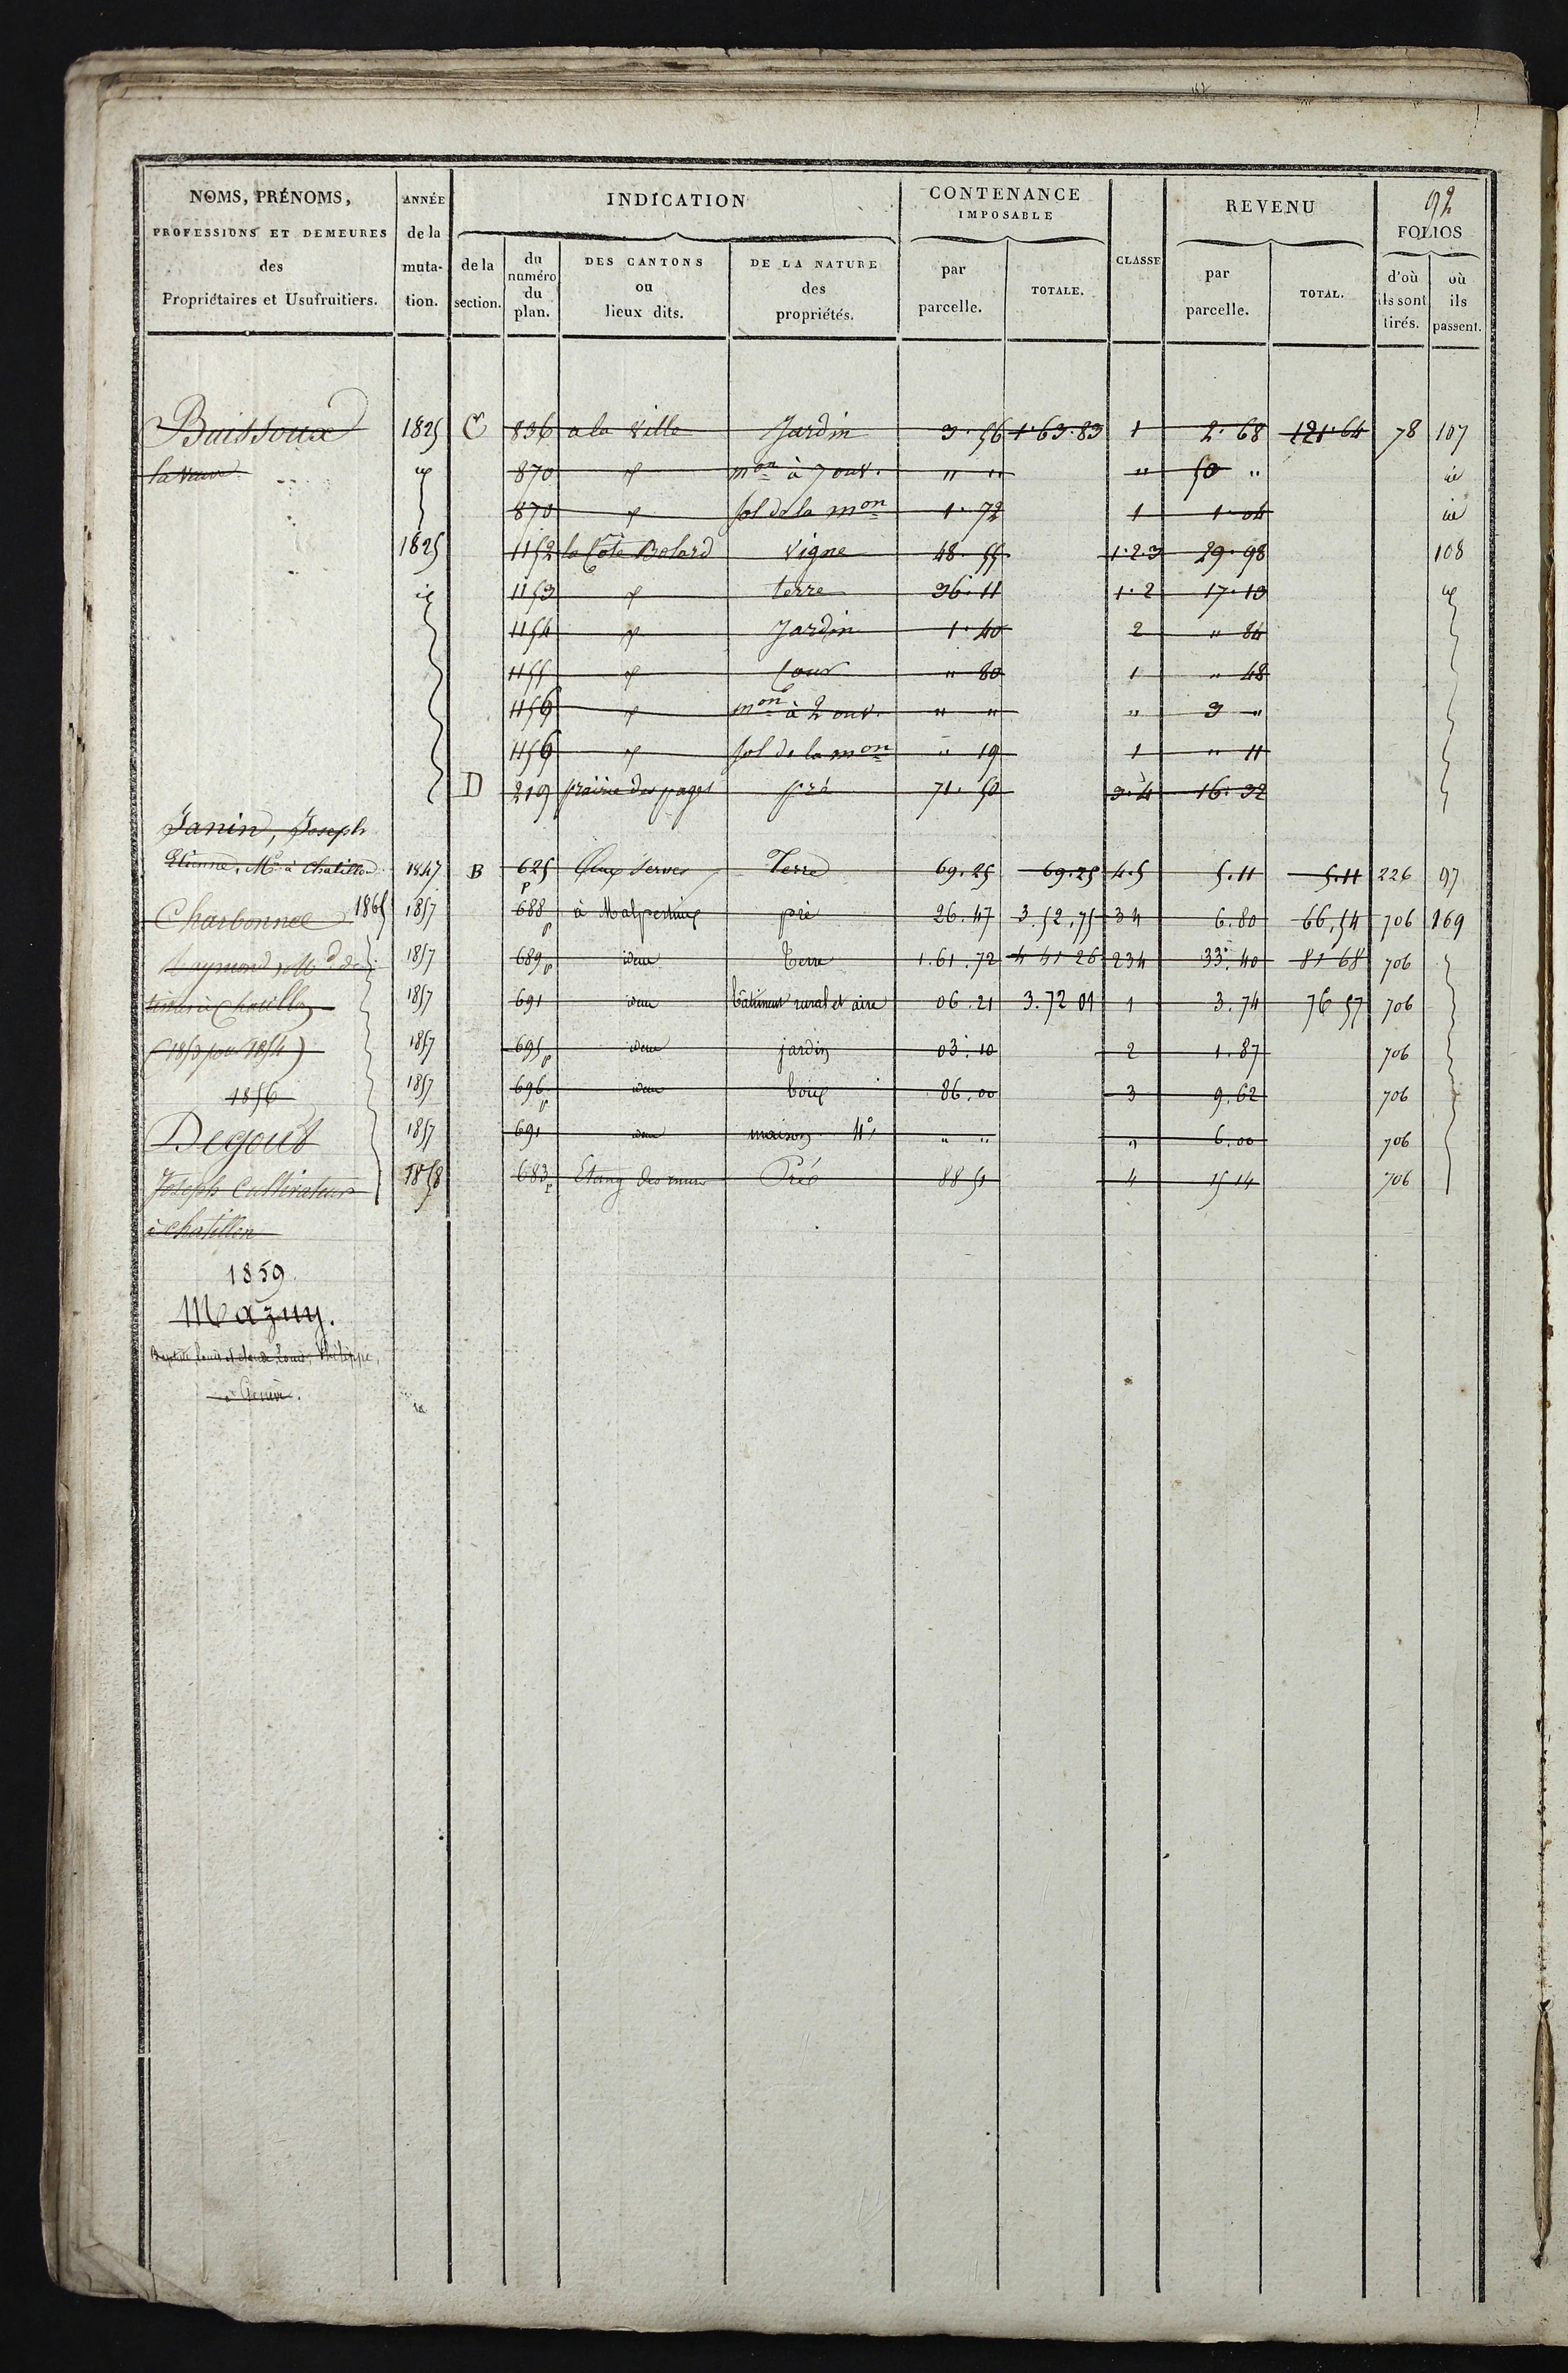 92
NOMS, PRÉNOMS, PROFESSIONS ET DEMEURES des Propriétaires et Usufruitiers.
ANNÉE de la muta- tion.
INDICATION
de la section.
du numéro du plan.
DES CANTONS ou lieux dits.
DE LA NATURE des propriétés.
CONTENANCE IMPOSABLE
par parcelle.
TOTALE.
CLASSE
REVENU
par parcelle.
TOTAL.
FOLIOS
d'où ils sont tirés.
où ils passent.
Buissoux 1825 C 836 a la Ville Jardin 3. 56 1. 63. 83 1 2. 68 121. 64 78 107
la veuve id 870 id mon à 7 ouv. " " " 50 " id
870 id sol de la mon 1. 72 1 1. 04 id
1825 1152 la Côte Bolard vigne 48. 55 1.2.3 29. 98 108
id 1153 id terre 36. 11 1. 2 17. 13 id
1154 id Jardin 1. 40 2 " 84
1155 id Cour " 80 1 " 48
1156 id mon à 2 ouv. " " " 3 "
1156 id sol de la mon " 19 1 " 11
D 219 prairie des pages pré 71. 50 3. 4 16. 32
Janin, Joseph
Etienne, Md à Chatillon 1847 B 625 p Terre 69. 25 69. 25 4.5 5. 11 5. 11 226 97
Charbonnel 1865 1857 688 p à Malpertuis pré 26. 47 3. 52. 75 34 6. 80 66, 54 706 169
Raymond, Md de 1857 689 p idem Terre 1. 61. 72 4 41 26 234 33. 40 81 68 706
1857 691 idem bâtiment rural et aire 06. 21 3. 72 01 1 3. 74 76 57 706
(1853 pour 1854) 1857 695 p idem jardin 03. 10 2 1. 87 706
1856 1857 696 p idem bois 86. 00 3 9. 62 706
Degout 1857 691 idem maison " " " 6. 00 706
Joseph Cultivateur 1858 683 p Etang des Pré 88 51 4 15 14 706
à Chatillon
1859.
Mazuy.
Louis, Philippe,